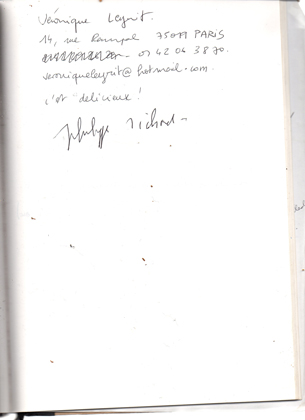 Véronique Leyrit.
14, rue Rampal 75019 PARIS
01 42 06 38 70.
veroniqueleyrit@hotmail.com.
c'est "délicieux!
Philippe Richard